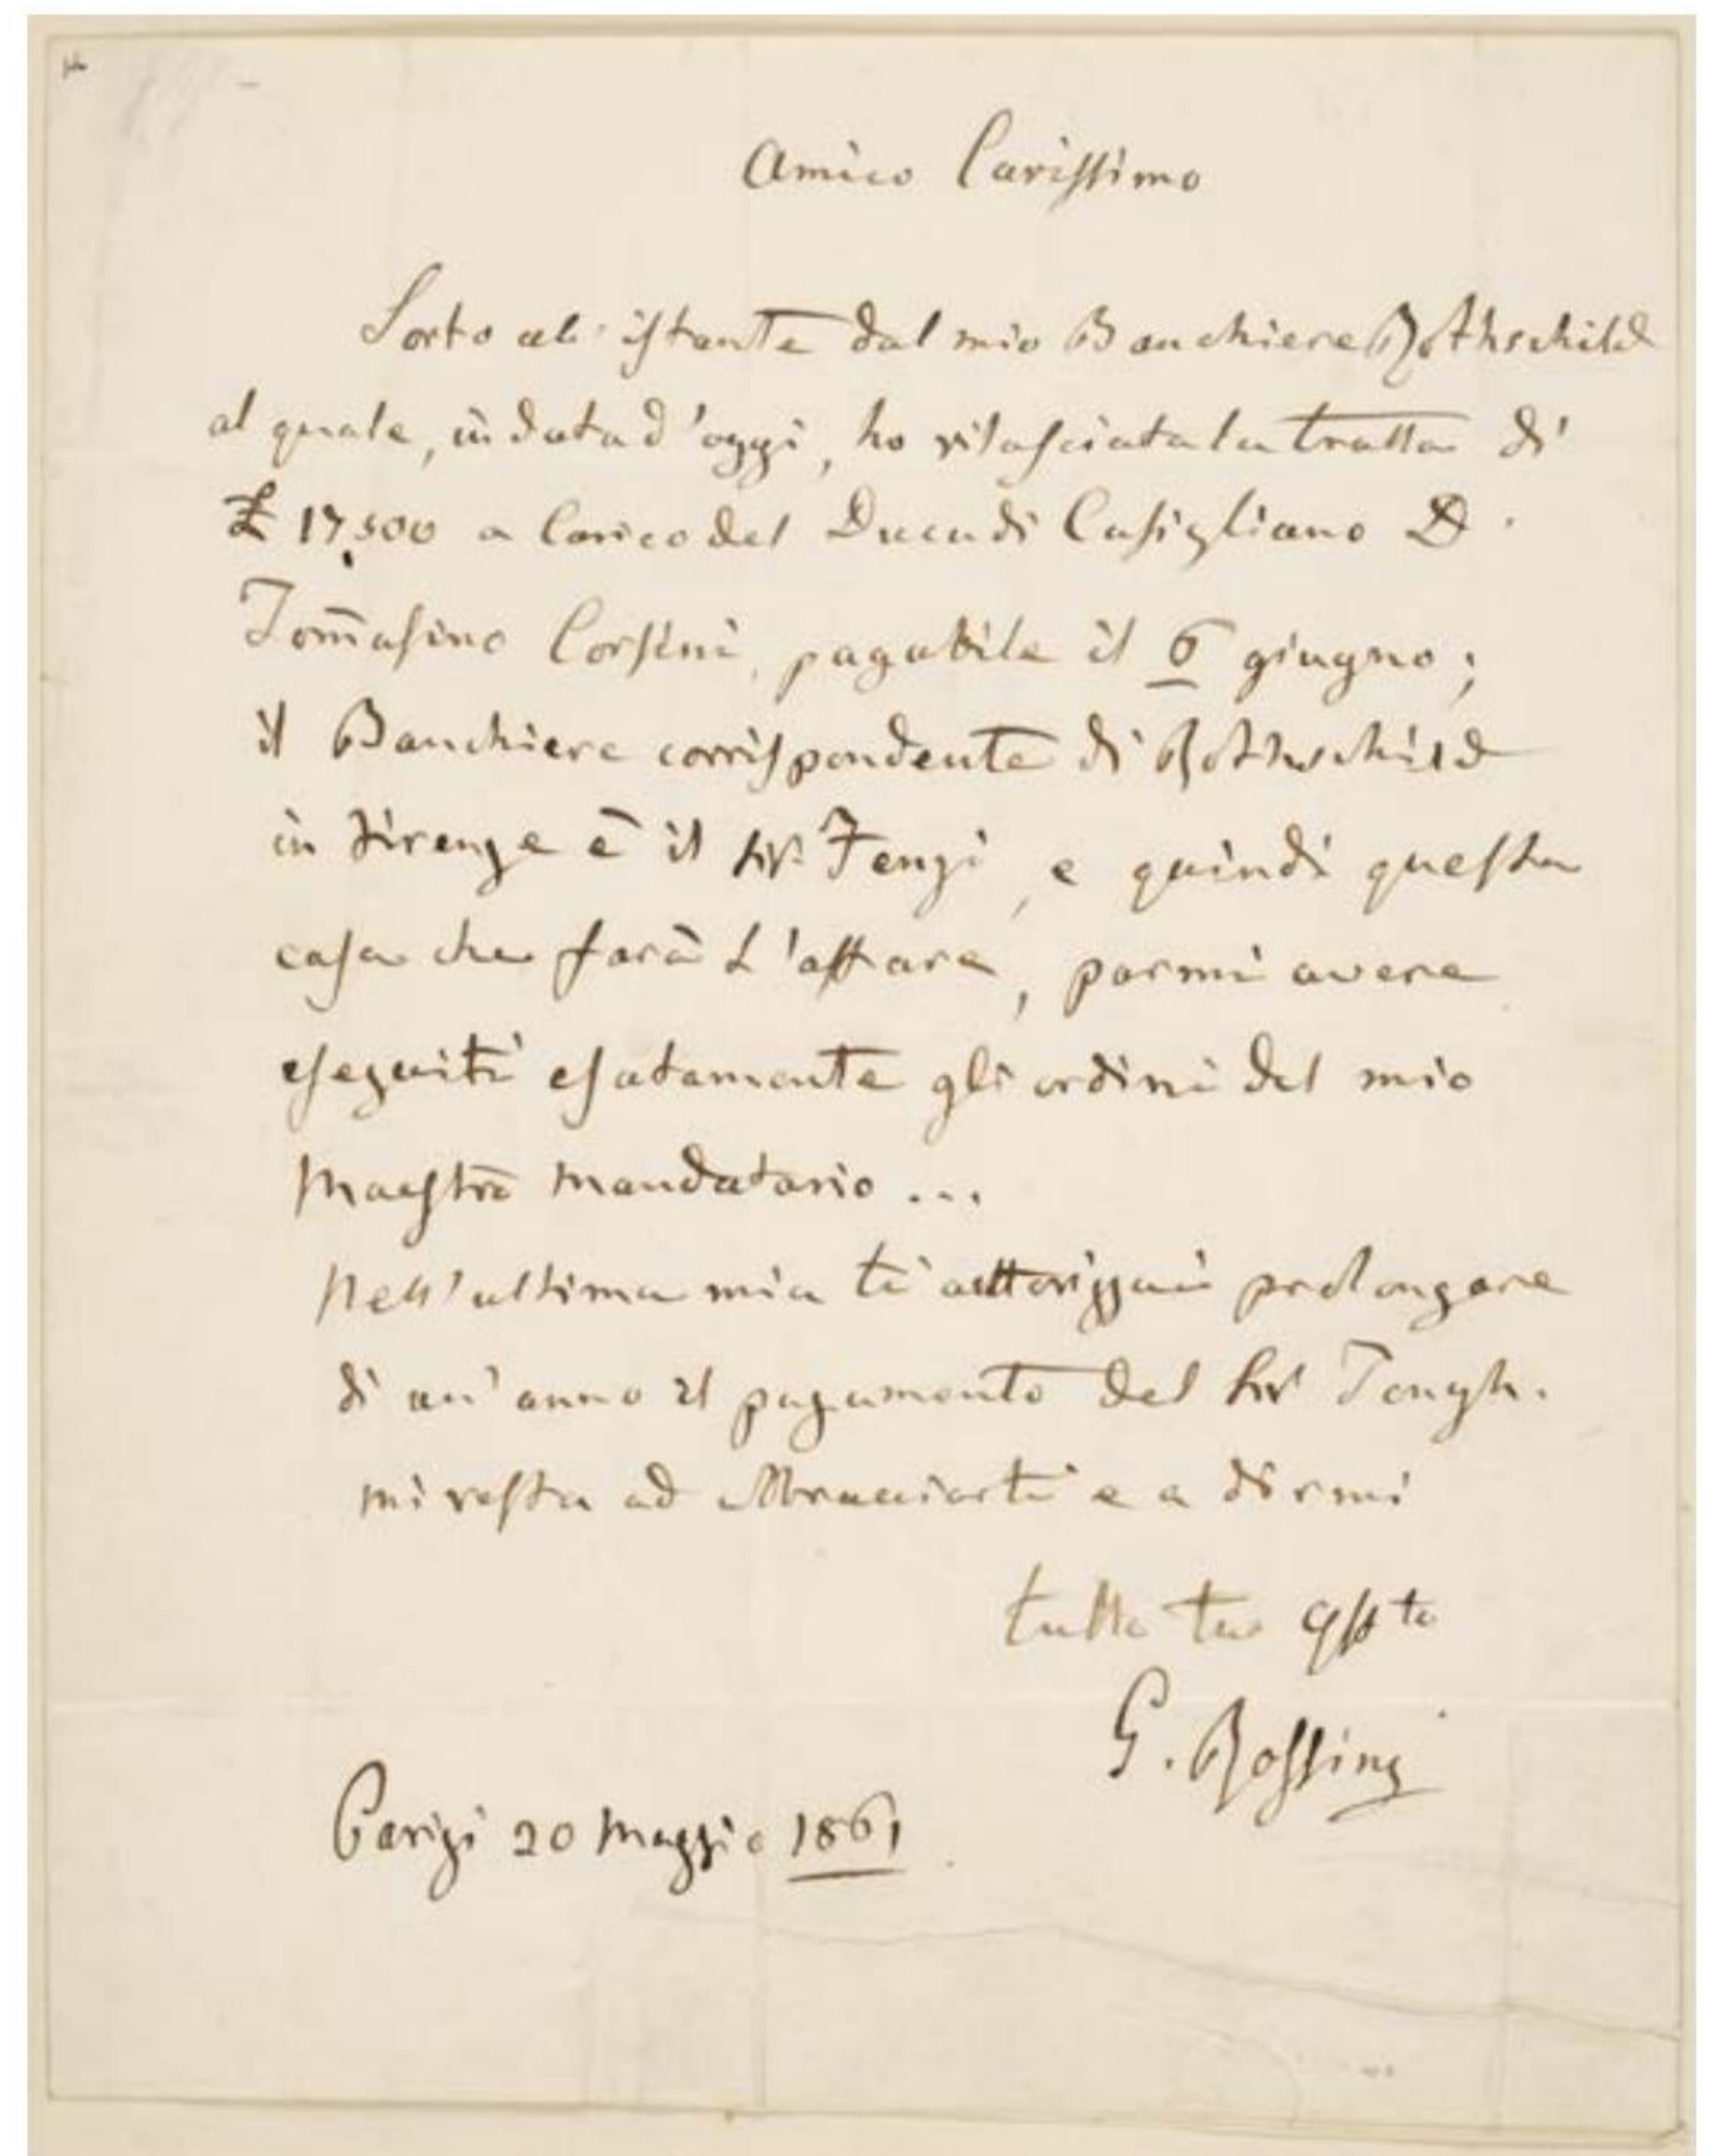 Amico Carissimo
Sorto all'istante dal mio Banchiere Rothschild
al quale, in data d'oggi, ho rilasciata la tratta di
£ 17,500 a Carico del Duca di Casigliano D.
Tom̄asino Corsini, pagabile il 6 giugno;
il Banchiere corrispondente di Rothschild
in Firenze è il Sigr. Fenzi, e quindi questa
casa che farà L'affare, parmi avere
eseguiti esatamente gli ordini del mio
Maestro mandatario ...
Nell'ultima mia ti auttorizzai prolongare
di un'anno il pagamento del Sigr
mi resta ad Abbracciarti e a dirmi
tutto tuo affto
G. Rossini
Parigi 20 Maggio 1861